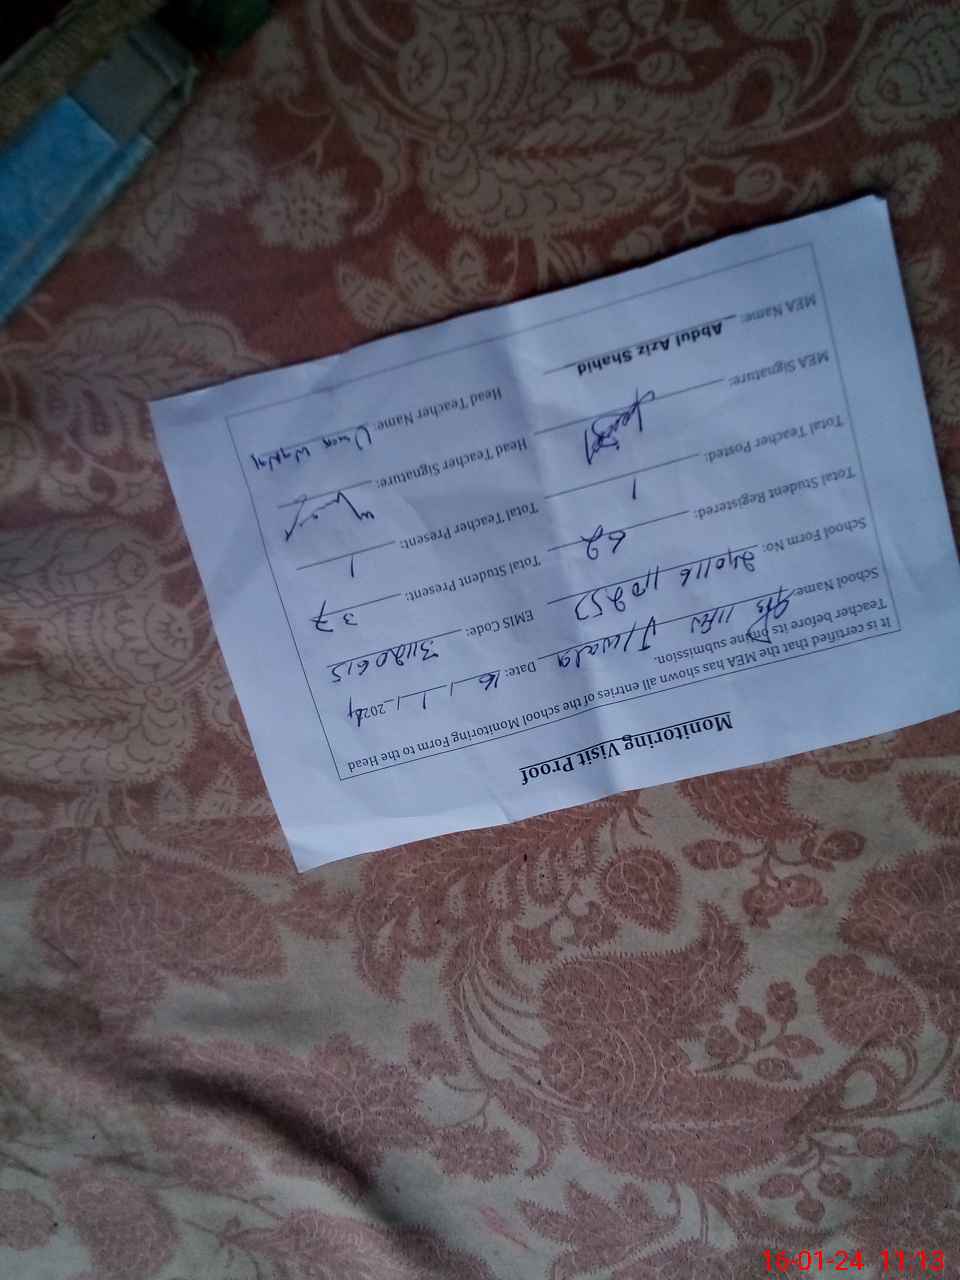 Monitoring Visit Proof
It is certified that the MEA has shown all entries of the school Monitoring Form to the Head
Teacher before its online submission.
School Name: Date: 16 / 1 / 2024
School Form No: 240116 110253 EMIS Code: 31120615
Total Student Registered: 62 Total Student Present: 37
Total Teacher Posted: 1 Total Teacher Present: 1
MEA Signature: Head Teacher Signature:
MEA Name: Abdul Aziz Shahid Head Teacher Name:
16-01-24 11:13